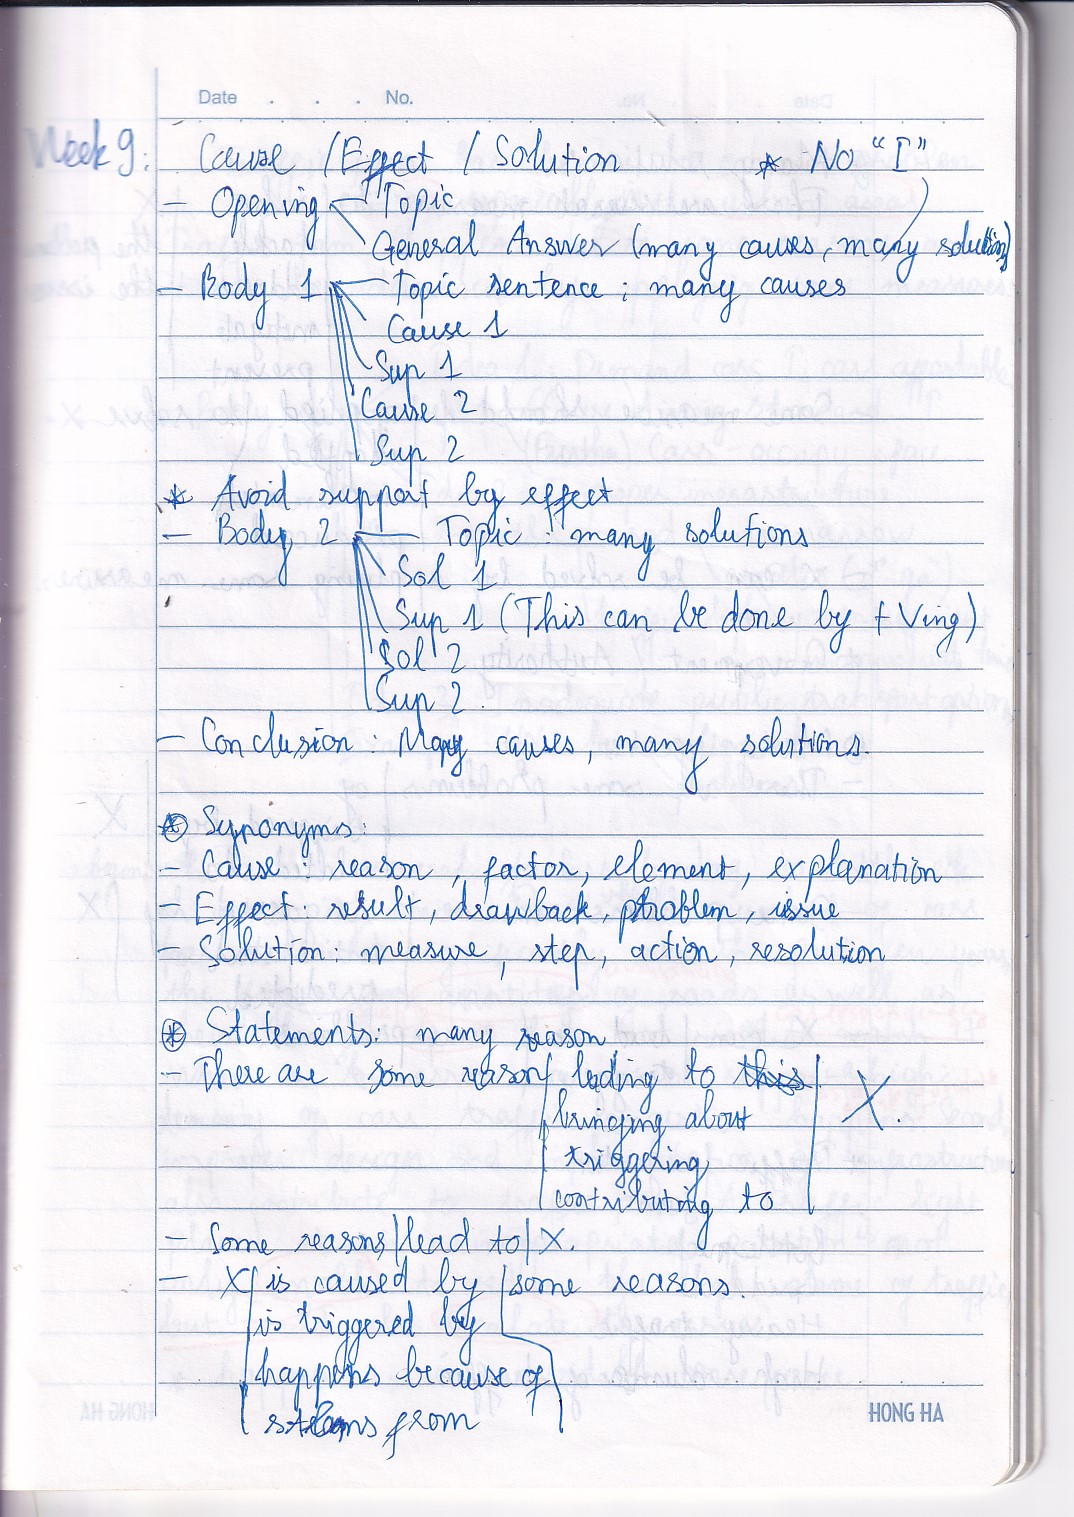 Date . . . No.
Week 9: Cause / Effect / Solution * No "I"
- Opening Topic
General Answer (many causes, many solutions)
- Body 1 Topic sentence : many causes
Cause 1
Sup 1
Cause 2
Sup 2
* Avoid support by effect
- Body 2 Topic : many solutions
Sol 1
Sup 1 (This can be done by + Ving)
Sol 2
Sup 2.
- Conclusion : Many causes, many solutions.
* Synonyms:
- Cause : reason, factor, element, explanation
- Effect : result, drawback, problem, issue
- Solution : measure, step, action, resolution
* Statements: many reason
- There are some reason leading to this X.
bringing about
triggering
contributing to
- Some reasons | lead to | X.
- X is caused by some reasons.
is triggered by
happens because of
stems from
HONG HA